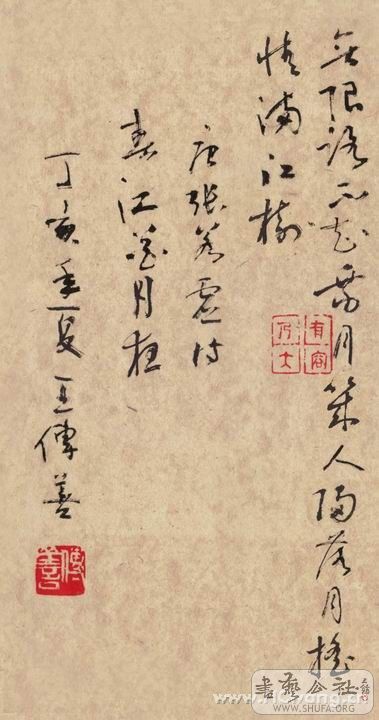 無限路不知乘月幾人歸落月搖
情滿江樹
唐張若虛詩
春江花月夜
丁亥年夏王傳善
有容乃大
傳善
書藝公社
WWW.SHUFA.ORG